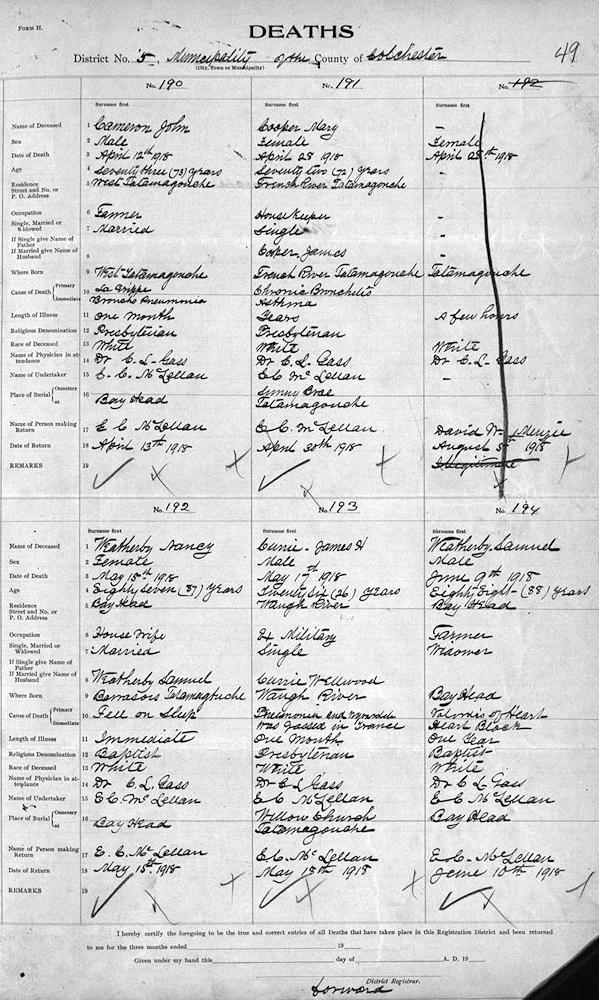 FORM H.
DEATHS
49
District No. 5, Municipality of the County of Colchester
(City, Town or Municipality)
No. 190 No. 191 No. 192
Surname first Surname first Surname first
Name of Deceased 1 Cameron John Cooper Mary –
Sex 2 Male Female Female
Date of Death 3 April 12th 1918 April 28 1918 April 28th 1918
Age 4 Seventy three (73) years Seventy two (72) years –
Residence Street and No. or P. O. Address 5 West Tatamagouche French River Tatamagouche
Occupation 6 Farmer House Keeper –
Single, Married or Widowed 7 Married Single –
If Single give Name of Father
If Married give Name of Husband 8 Cooper James –
Where Born 9 West Tatamagouche French River Tatamagouche Tatamagouche
Cause of Death Primary 10 La Grippe Chronic Bronchitis
Immediate Broncho Pneumonia Asthma
Length of Illness 11 One month Years A few hours
Religious Denomination 12 Presbyterian Presbyterian
Race of Deceased 13 White White White
Name of Physician in attendance 14 Dr C. L. Gass Dr C. L. Gass Dr C. L. Gass
Name of Undertaker 15 E. C. McLellan E C McLellan –
Place of Burial Cemetery at 16 Bay Head Sunny Brae Tatamagouche
Name of Person making Return 17 E C McLellan E. C. McLellan David W. Menzie
Date of Return 18 April 13th 1918 April 30th 1918 August 5th 1918
REMARKS 19 Illegitimate
No. 192 No. 193 No. 194
Surname first Surname first Surname first
Name of Deceased 1 Weatherby Nancy Currie - James H Weatherby Samuel
Sex 2 Female Male Male
Date of Death 3 May 15th 1918 May 17th 1918 June 9th 1918
Age 4 Eighty seven (87) Years Twenty six (26) Years Eighty Eight - (88) Years
Residence Street and No. or P. O. Address 5 Bay Head Waugh River Bay Head
Occupation 6 House Wife Military Farmer
Single, Married or Widowed 7 Married Single Widower
If Single give Name of Father
If Married give Name of Husband 8 Weatherby Samuel Currie Wellwood
Where Born 9 Tatamagouche Waugh River Bay Head
Cause of Death Primary 10 Fell on Pneumonia and of Heart
Immediate Was gassed in France Heart Block
Length of Illness 11 Immediate One Month One Year
Religious Denomination 12 Baptist Presbyterian Baptist
Race of Deceased 13 White White White
Name of Physician in attendance 14 Dr C. L. Gass Dr C L Gass Dr C L Gass
Name of Undertaker 15 E. C. McLellan E C McLellan E C McLellan
Place of Burial Cemetery at 16 Bay Head Willow Church Tatamagouche Bay Head
Name of Person making Return 17 E. C. McLellan E. C. McLellan E. C. McLellan
Date of Return 18 May 15th 1918 May 18th 1918 June 10th 1918
REMARKS 19
I hereby certify the foregoing to be the true and correct entries of all Deaths that have taken place in this Registration District and been returned
to me for the three months ended 19
Given under my hand this day of A. D. 19
District Registrar.
forward